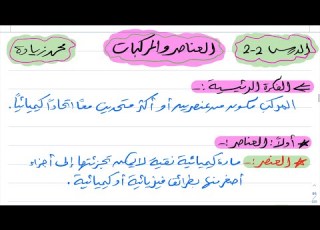 الدرس 2-2
العناصر والمركبات
محمد زيادة
الفكرة الرئيسية :-
المركب مكون من عنصرين أو أكثر متحدين معًا اتحادًا كيميائيًا.
* أولاً: العناصر :-
* العنصر :- مادة كيميائية نقية لا يمكن تجزئتها إلى أجزاء
أصغر منها بطرائق فيزيائية أو كيميائية.